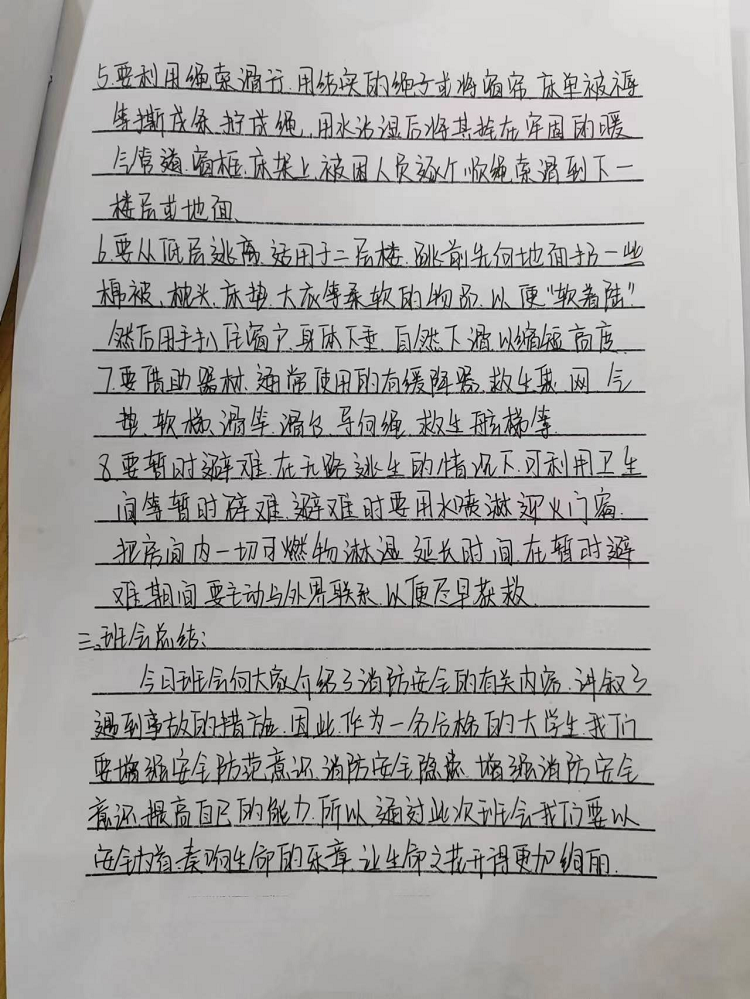 5.要利用绳索滑行.用结实的绳子或将窗帘.床单被褥
等撕成条.拧成绳,用水沾湿后将其拴在牢固的暖
气管道.窗框.床架上,被困人员逐个顺绳索滑到下一
楼层或地面.
6.要从低层逃离.适用于二层楼.跳前先向地面扔一些
棉被、枕头、床垫.大衣等柔软的物品.以便“软着陆”
然后用手扒住窗户.身体下垂.自然下滑.以缩短高度
7.要借助器材.通常使用的有缓降器.救生袋.网.气
垫、软梯、滑竿.滑台、导向绳.救生舷梯等.
8.要暂时避难.在无路逃生的情况下.可利用卫生
间等暂时辟难.避难时要用水喷淋迎火门窗.
把房间内一切可燃物淋湿.延长时间.在暂时避
难期间.要主动与外界联系.以便尽早获救.
三.班会总结:
今日班会向大家介绍了消防安全的有关内容.讲叙了
遇到事故的措施.因此.作为一名合格的大学生.我们
要增强安全防范意识.消防安全隐患.增强消防安全
意识.提高自己的能力.所以.通过此次班会我们要以
安全为首.奏响生命的乐章.让生命之花开得更加绚丽.